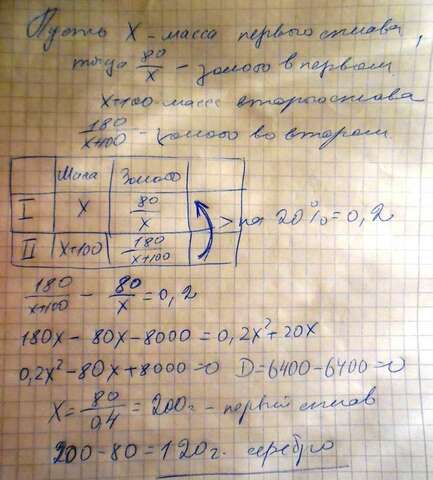 Пусть X - масса первого сплава,
тогда 80/x - золото в первом
x+100 масса второго сплава
180/x+100 - золото во втором.
Масса Золото
I X 80/x > на 20% = 0,2
II X+100 180/x+100
180/x+100 - 80/x = 0,2
180x - 80x - 8000 = 0,2x² + 20x
0,2x² - 80x + 8000 = 0 D = 6400 - 6400 = 0
X = 80/0,4 = 200г - первый сплав
200 - 80 = 120г. серебро